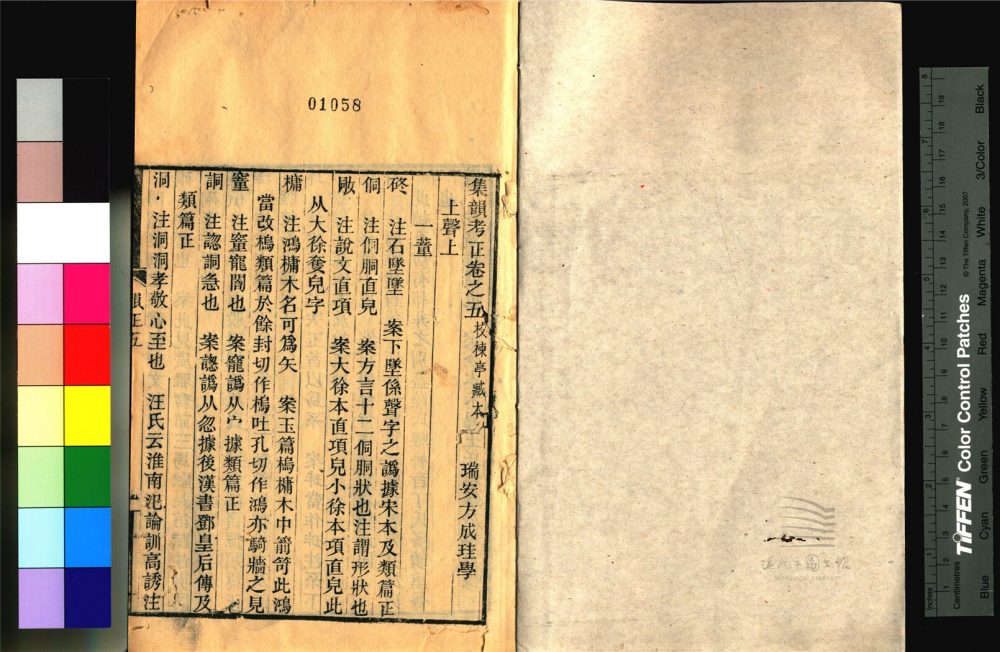 01058
集韻考正卷之五 校棟亭臧本 瑞安方成珪學
上聲上
一董
㟅 注石墜墜 案下墜係聲字之譌據宋本及類篇正
侗 注侗胴直皃 案方言十二侗胴狀也注謂形狀也
注說文直項 案大徐本直項皃小徐本項直皃此
从大徐奪皃字
槦 注鴻槦木名可爲矢 案玉篇㮧槦木中箭笴此鴻
當改㮧類篇於餘封切作㮧吐孔切作鴻亦騎牆之見
䆹 注䆹竉闇也 案竉譌从宀據類篇正
詷 注認詷急也 案認譌从忍據後漢書鄧皇后傳及
類篇正
洞 注洞洞孝敬心至也 汪氏云淮南氾論訓高誘注
韻正五
溫州市圖書館
WENZHOU LIBRARY
Inches
Centimetres
TIFFEN Color Control Patches
© The Tiffen Company, 2007
Blue Cyan Green Yellow Red Magenta White 3/Color Black